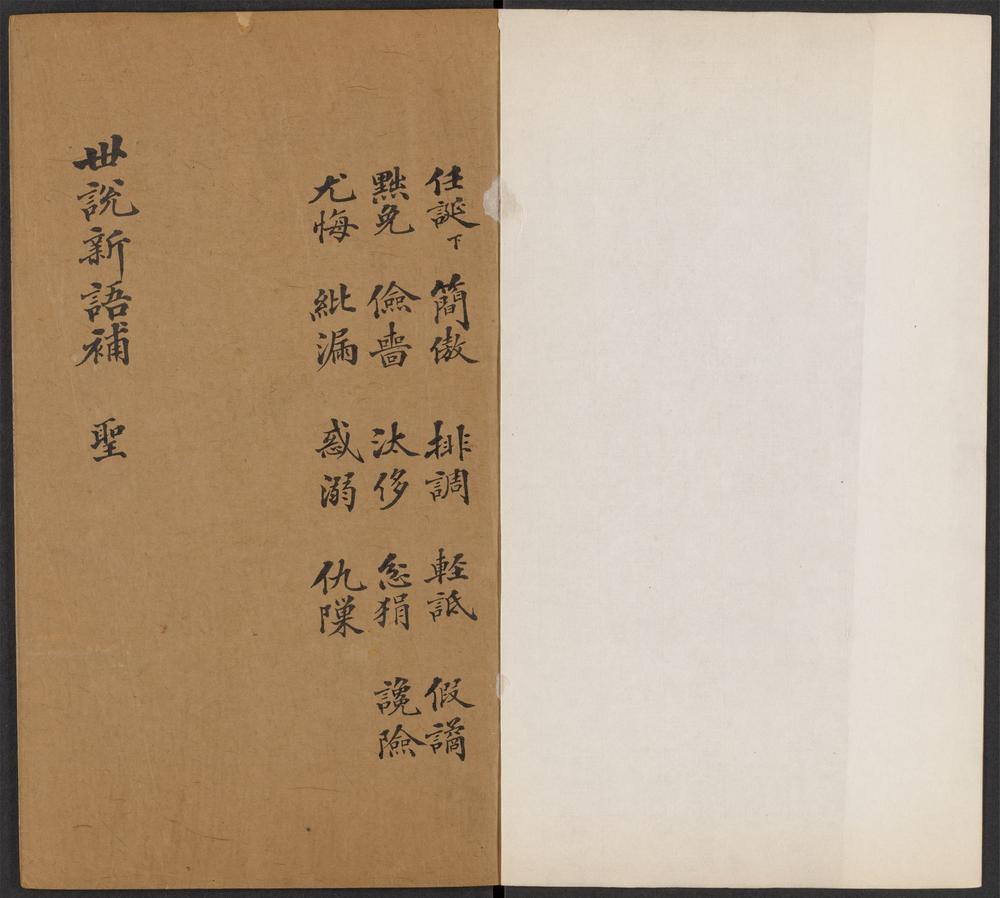 任誕下 簡傲 排調 軽詆 假譎
黜免 儉嗇 汰侈 忿狷 讒險
尤悔 紕漏 惑溺 仇隟
世說新語補 聖